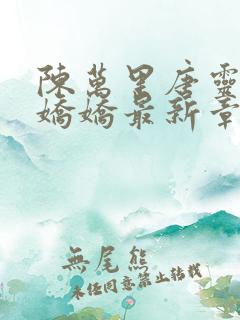 陳萬里唐靈
嬌嬌最新章
無尾熊
未經同意禁止轉載